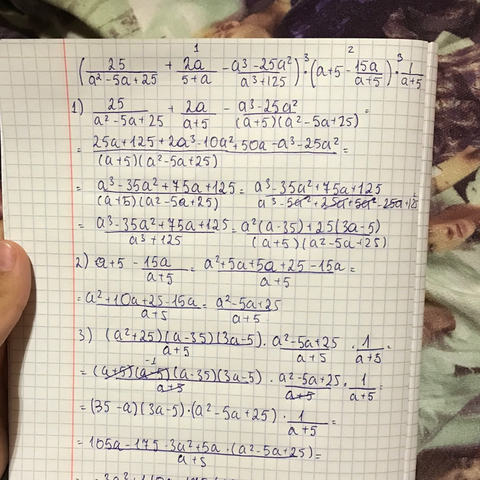 1 2
(25/(a²-5a+25) + 2a/(5+a) - (a³-25a²)/(a³+125)) ³· (a+5 - 15a/(a+5)) ³· 1/(a+5)
1) 25/(a²-5a+25) + 2a/(a+5) - (a³-25a²)/((a+5)(a²-5a+25)) =
= (25a+125+2a³-10a²+50a-a³-25a²)/((a+5)(a²-5a+25)) =
= (a³-35a²+75a+125)/((a+5)(a²-5a+25)) = (a³-35a²+75a+125)/(a³-5a²+25a+5a²-25a+125)
= (a³-35a²+75a+125)/(a³+125) = (a²(a-35)+25(3a-5))/((a+5)(a²-5a+25)
2) a+5 - 15a/(a+5) = (a²+5a+5a+25-15a)/(a+5) =
= (a²+10a+25-15a)/(a+5) = (a²-5a+25)/(a+5)
3) (a²+25)(a-35)(3a-5)/(a+5) · (a²-5a+25)/(a+5) · 1/(a+5) =
= (a+5)(a-5)(a-35)(3a-5)/(a+5) · (a²-5a+25)/(a+5) · 1/(a+5) =
= (35-a)(3a-5)·(a²-5a+25)· 1/(a+5) =
= (105a-175-3a²+5a·(a²-5a+25))/(a+5) =